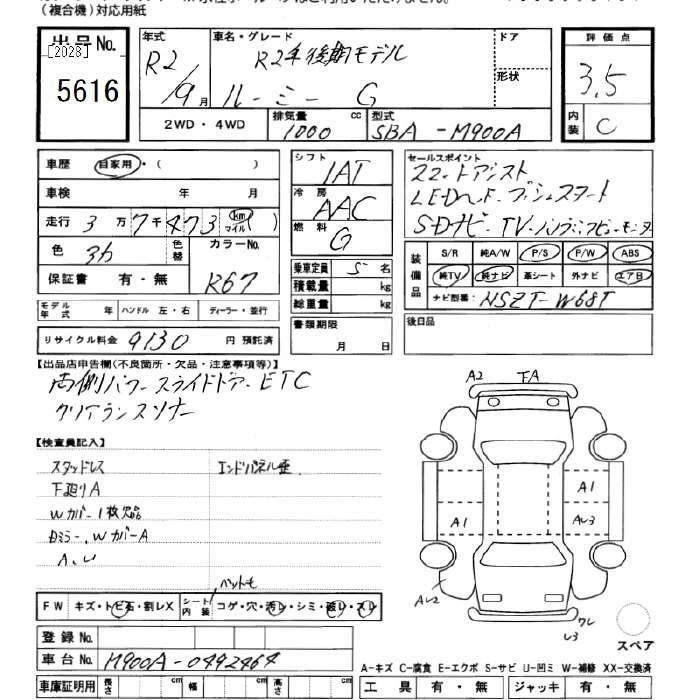 (複合機)対応用紙
出品No.
[2028]
5616
年式
R2
9月
車名・グレード
R2年後期モデル
ルーミー G
ドア
形状
2WD・4WD
排気量
1000 cc
型式
5BA -M900A
評価点
3.5
内装
C
車歴 自家用・( )
車検 年 月
走行 3万7千473 (km マイル)
色 アカ 色替 カラーNo.
R67
保証書 有・無
モデル年式 年 ハンドル 左・右 ディーラー・並行
リサイクル料金 9130 円 預託済
シフト
IAT
冷房
AAC
燃料
G
乗車定員 5 名
積載量 kg
総重量 kg
書類期限
月 日
セールスポイント
スマートアシスト
LEDヘッド・プッシュスタート
SDナビ・TV・パノラミックビューモニター
装備品
S/R 純A/W P/S P/W ABS
純TV 純ナビ 革シート 外ナビ エアB
ナビ型番: NSZT-W68T
後日品
【出品店申告欄(不良箇所・欠品・注意事項等)】
両側パワースライドドア・ETC
クリアランスソナー
【検査員記入】
スタッドレス
下廻りA
Wカバー1枚欠品
Dミラー、WカバーA
A、U
エンドパネル歪
ペットモ
FW キズ・トビ石・割レX
シート内装 コゲ・穴・汚レ・シミ・破レ・スレ
登録No.
車台No. M900A-0492464
車庫証明用 長さ cm 幅 cm 高さ cm
A2 FA
A1
A1
AU3
AU2
ワレ
U3
スペア
A-キズ C-腐食 E-エクボ S-サビ U-凹ミ W-補修 XX-交換済
工具 有・無 ジャッキ 有・無